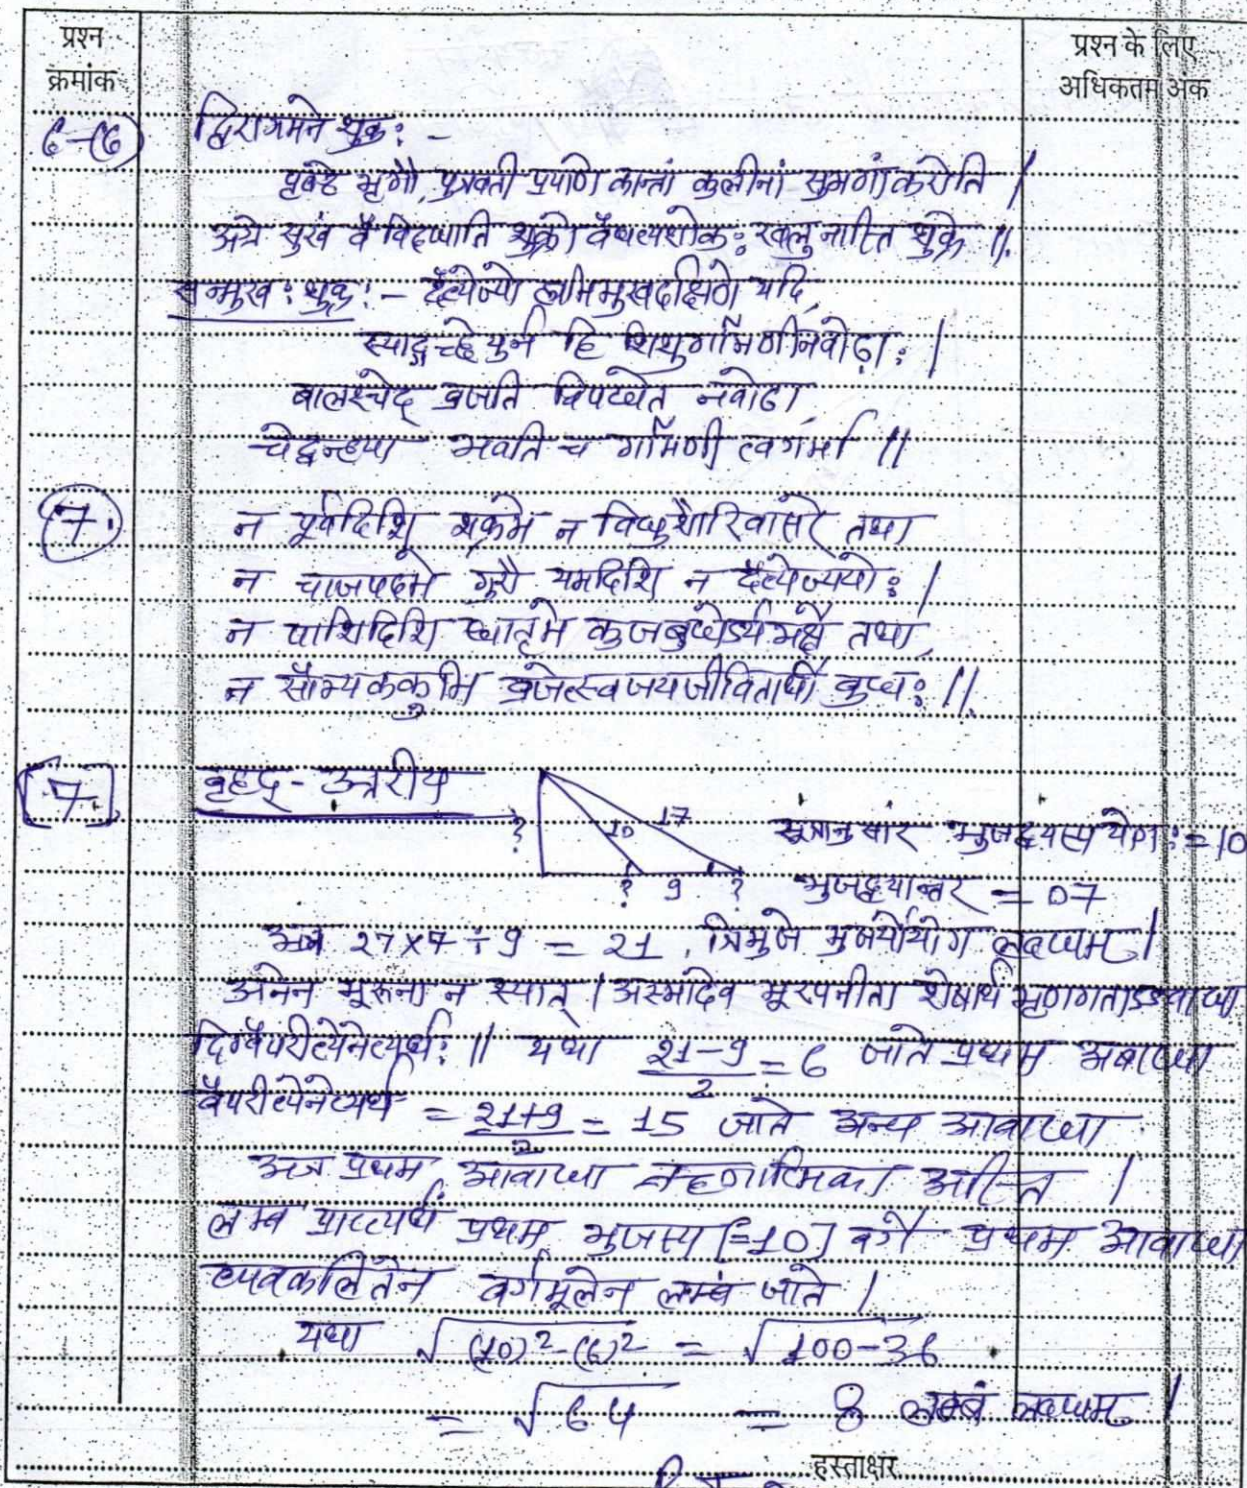 प्रश्न
क्रमांक
प्रश्न के लिए
अधिकतम अंक
द्विरागमने शुक्र: -
पृष्ठे भृगौ, पुत्रवती प्रयाणे कान्तां कुलीनां सुभगां करोति |
अग्रे सुखं वै विदधाति शुक्रो वैधव्यशोक: खलु नास्ति शुक्रे ||
सन्मुख: शुक्र: - दैत्येज्यो ह्यभिमुखदक्षिणे यदि,
स्याद्गच्छेयुर्न हि शिशुगर्भिणीनवोढ़ा: |
बालश्चेद् व्रजति विपद्येत नवोढा,
चेद्वन्ध्या भवति च गर्भिणी त्वगर्भा ||
7. न पूर्वदिशि शक्रभे न विधुशौरिवासरे तथा
न चाजपदभे गुरौ यमदिशि न दैत्येज्ययो: |
न पाशिदिशि धातृभे कुजबुधेऽर्यमर्क्षे तथा,
न सौम्यककुभि व्रजेत्स्वजयजीवितार्थी बुध: ||
7
? 10 17 सूत्रानुसार भुजद्वयस्य योग: = 10
? 9 ? भुजद्वयान्तर = 07
अत्र 27 x 7 ÷ 9 = 21, त्रिभुजे भुजयोर्योग लब्धम् |
अनेन भूरूना न स्यात् | अस्मादेव भूरपनीता शेषार्धं मृणगताऽऽबाधा
दिग्वैपरीत्येनेत्यर्थ: || यथा 21-9/2 = 6 जाते प्रथम अबाधा
वैपरीत्येनेत्यर्थ = 21+9/2 = 15 जाते अन्य आबाधा
अत्र प्रथम आबाधा ऋणात्मिका अस्ति |
लम्ब प्राप्त्यर्थं प्रथम भुजस्य [=10] वर्गे प्रथम आबाधा
व्यवकलितेन वर्गमूलेन लम्बं जाते |
यथा √(10)²-(6)² = √100-36
= √64 = 8 लम्बं लब्धम् |
हस्ताक्षर